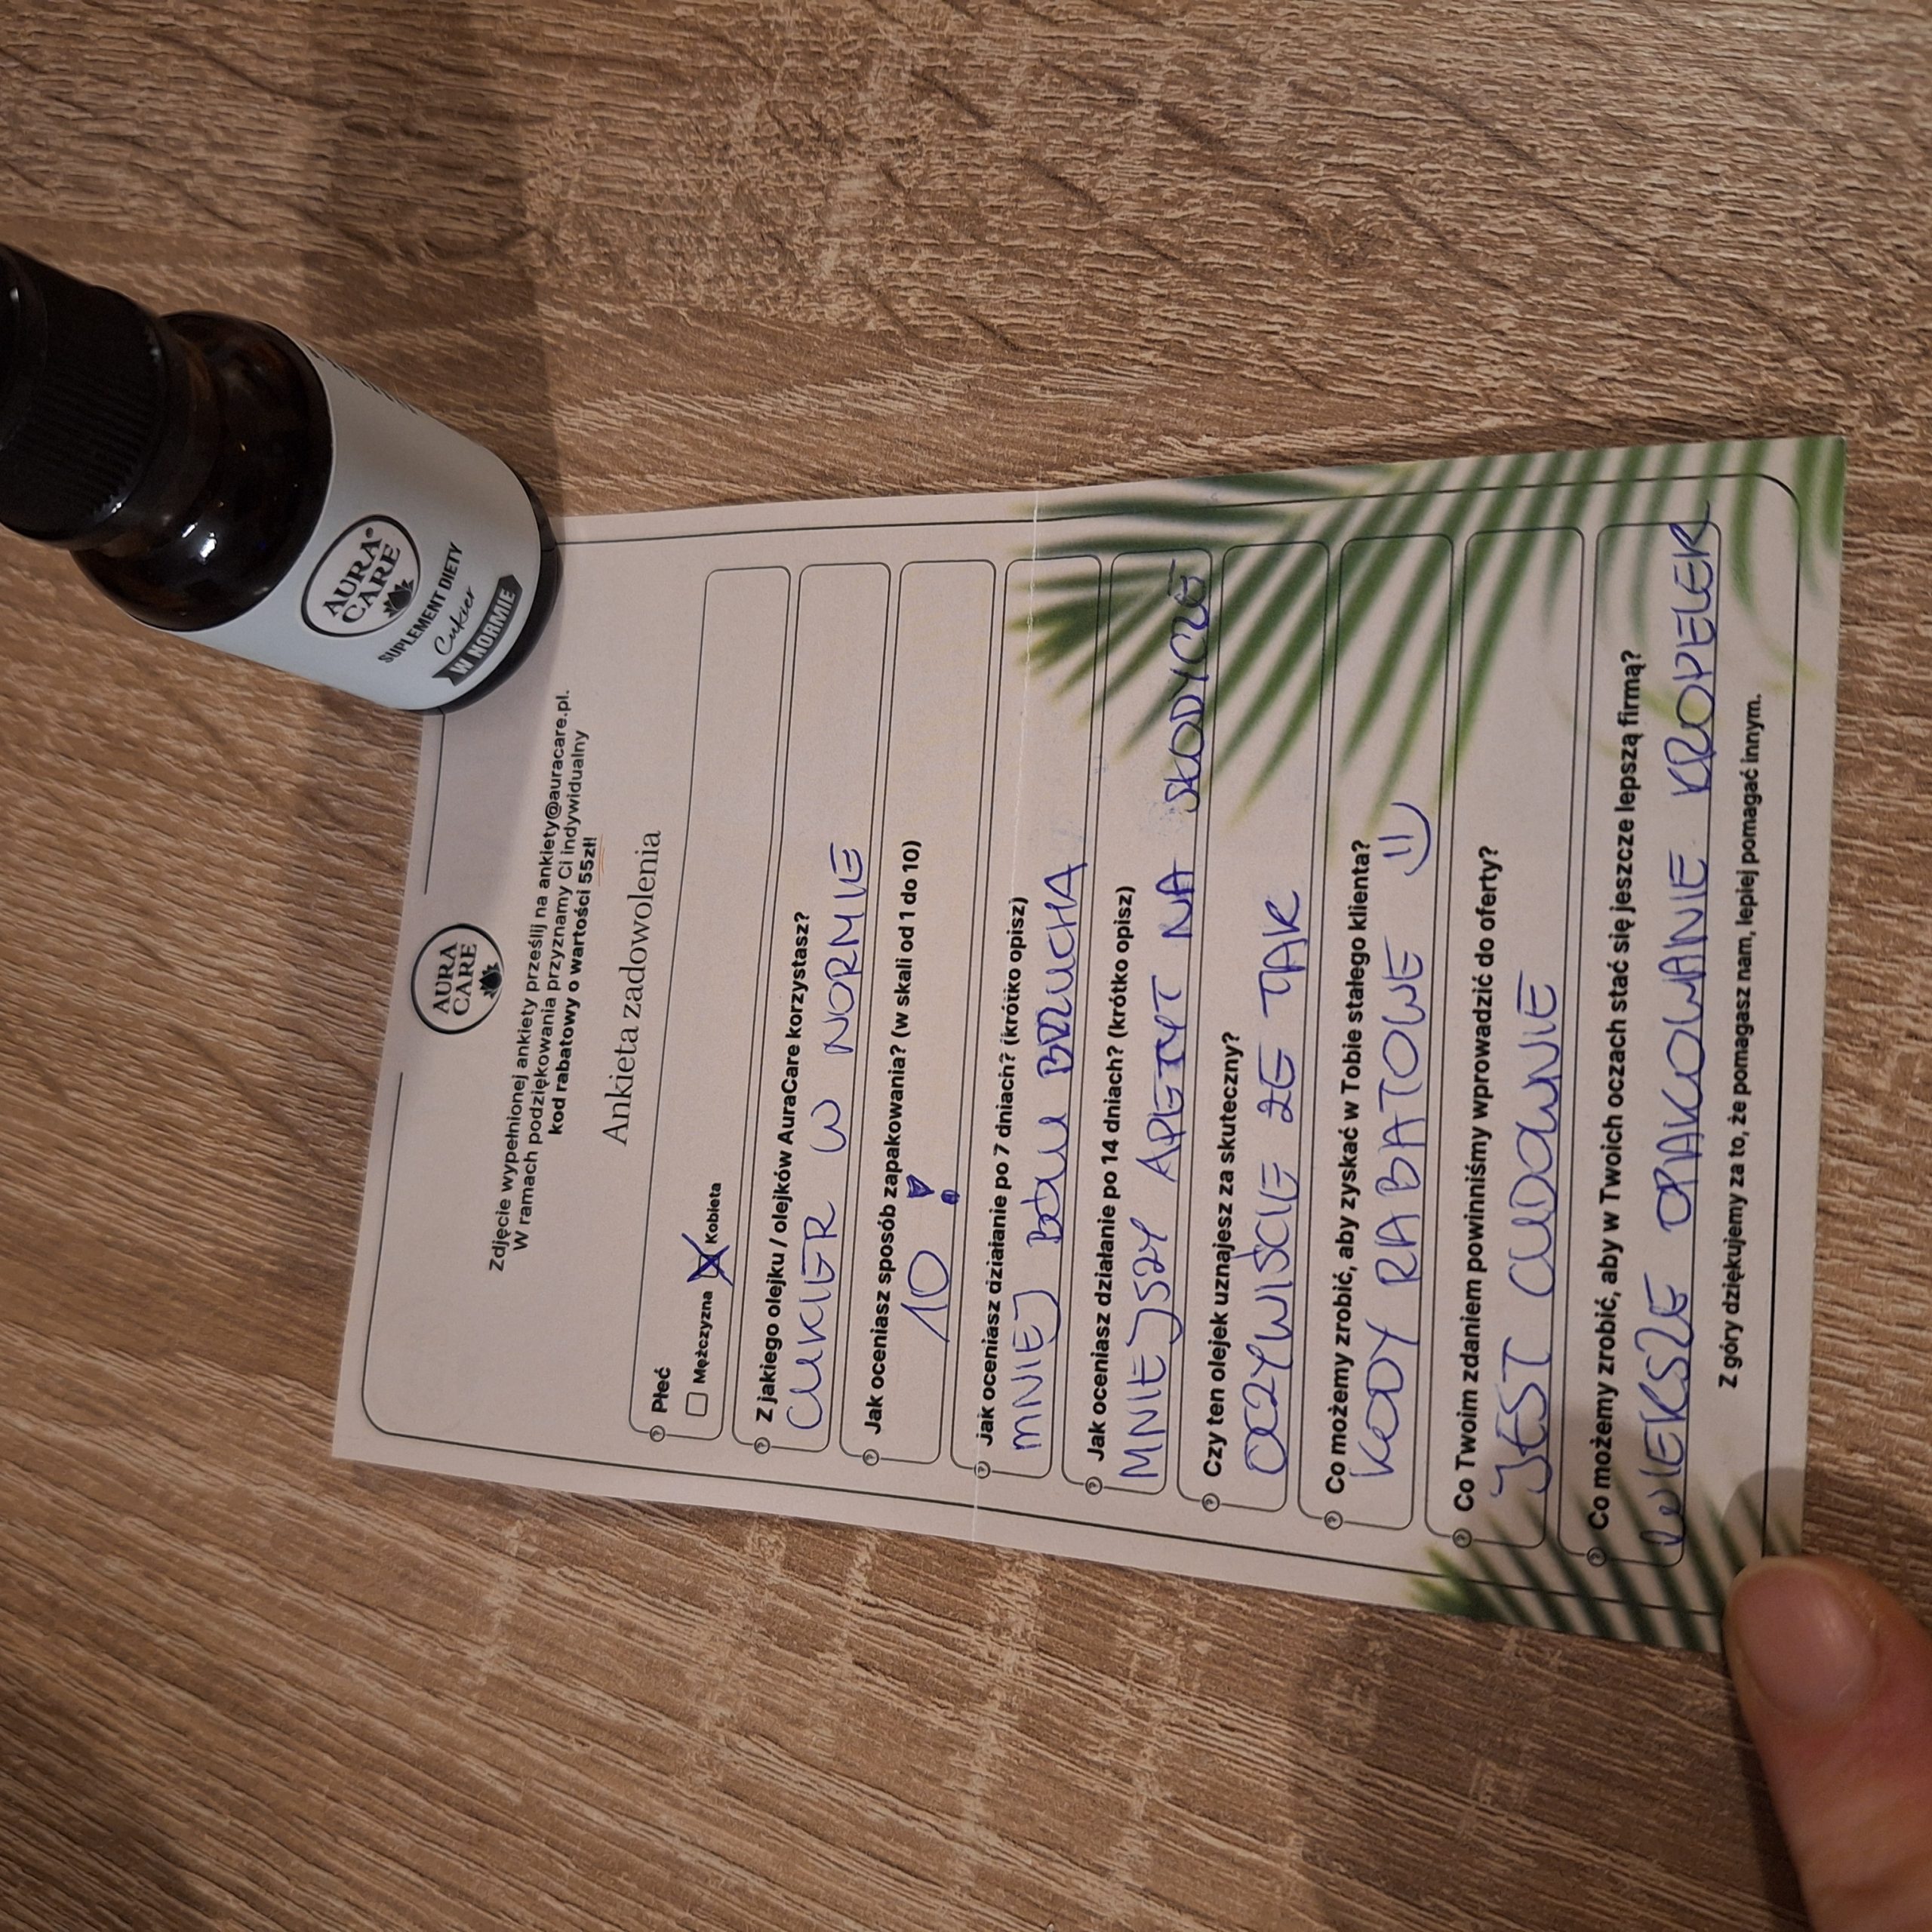 AURA
CARE®
SUPLEMENT DIETY
Cukier
W NORMIE
AURA
CARE
Zdjęcie wypełnionej ankiety prześlij na ankiety@auracare.pl.
W ramach podziękowania przyznamy Ci indywidualny
kod rabatowy o wartości 55zł!
Ankieta zadowolenia
Płeć
Mężczyzna Kobieta
Z jakiego olejku / olejków AuraCare korzystasz?
CUKIER W NORMIE
Jak oceniasz sposób zapakowania? (w skali od 1 do 10)
10!
Jak oceniasz działanie po 7 dniach? (krótko opisz)
MNIEJ BÓLU BRZUCHA
Jak oceniasz działanie po 14 dniach? (krótko opisz)
MNIEJSZY APETYT NA SŁODYCZE
Czy ten olejek uznajesz za skuteczny?
OCZYWIŚCIE ŻE TAK
Co możemy zrobić, aby zyskać w Tobie stałego klienta?
KODY RABATOWE :)
Co Twoim zdaniem powinniśmy wprowadzić do oferty?
JEST CUDOWNIE
Co możemy zrobić, aby w Twoich oczach stać się jeszcze lepszą firmą?
WIEKSZE OPAKOWANIE KROPELEK
Z góry dziękujemy za to, że pomagasz nam, lepiej pomagać innym.